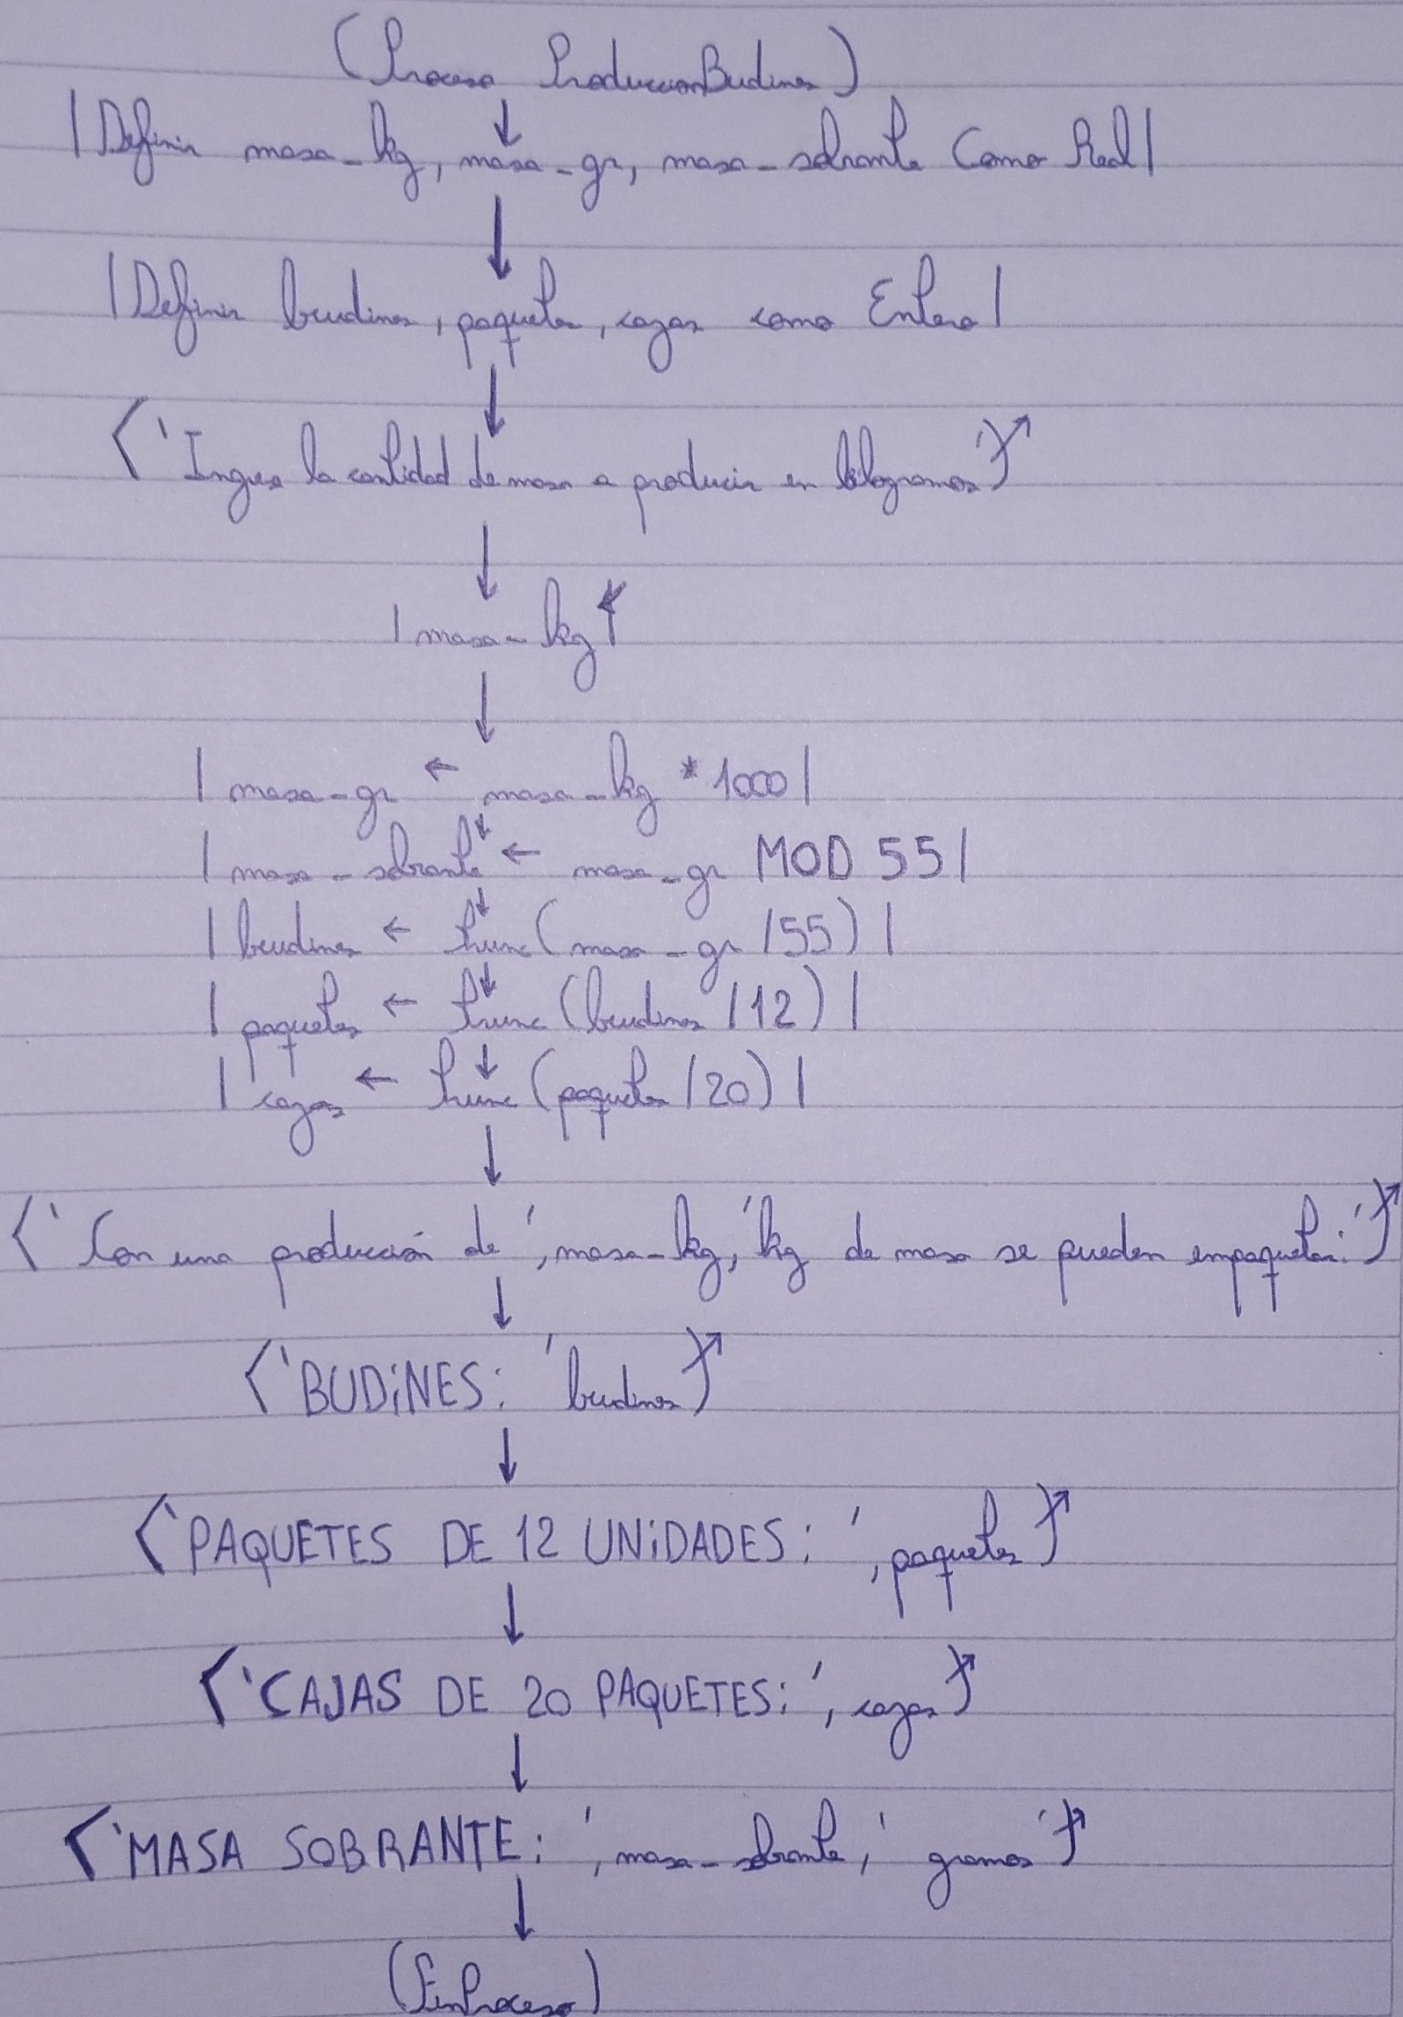 (Proceso ProduccionBudines)
|Definir masa_kg, masa_gr, masa_sobrante Como Real|
|Definir budines, paquetes, cajas como Entero|
'Ingrese la cantidad de masa a producir en kilogramos'
|masa_kg
|masa_gr ← masa_kg * 1000|
|masa_sobrante ← masa_gr MOD 55|
|budines ← trunc(masa_gr /55)|
|paquetes ← trunc(budines /12)|
|cajas ← trunc(paquetes /20)|
'Con una producción de ', masa_kg, 'kg de masa se pueden empaquetar:'
'BUDINES: ' budines
'PAQUETES DE 12 UNIDADES: ', paquetes
'CAJAS DE 20 PAQUETES: ', cajas
'MASA SOBRANTE: ', masa_sobrante, ' gramos'
(FinProceso)